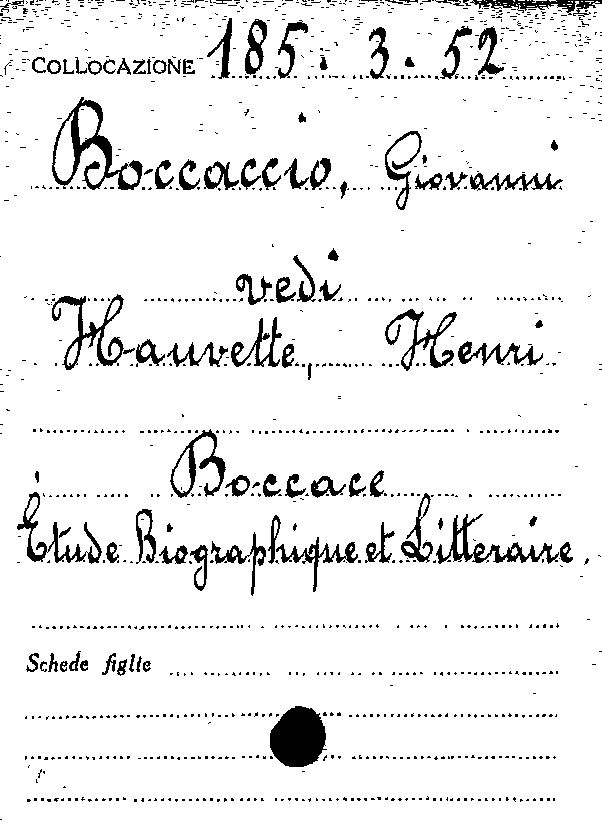 COLLOCAZIONE 185. 3. 52
Boccaccio, Giovanni
vedi
Hauvette, Henri
Boccace
Étude Biographique et Litteraire.
Schede figlie